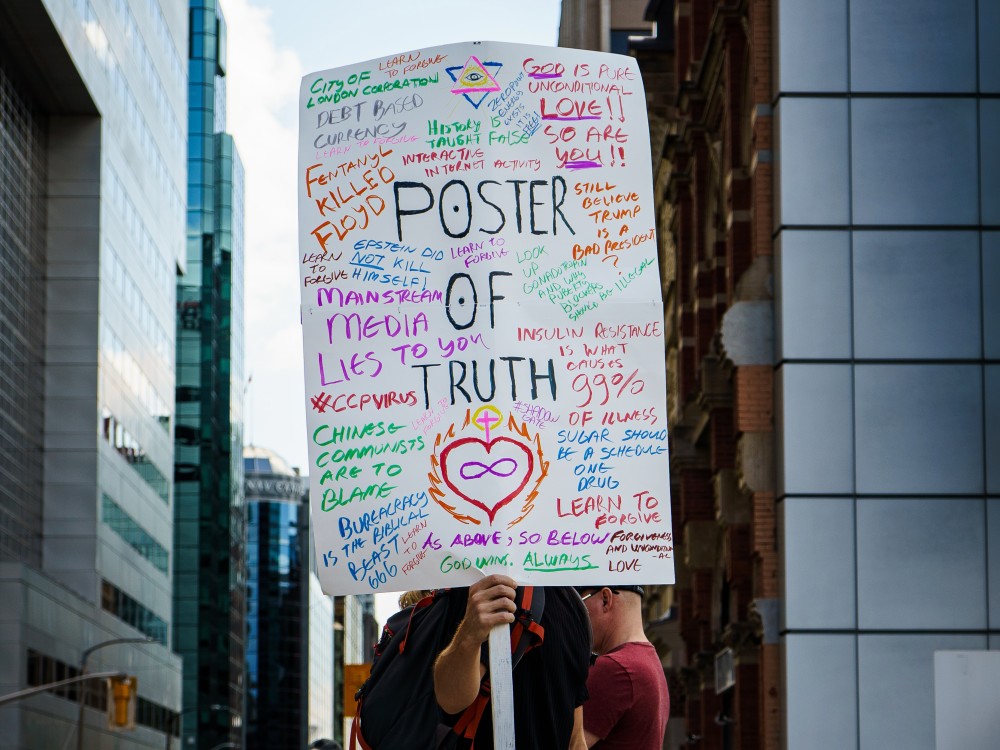 CITY OF
LONDON CORPORATION
LEARN
TO FORGIVE
DEBT BASED
CURRENCY
LEARN TO FORGIVE
HISTORY
IS
TAUGHT FALSE
ZEROPOINT
ENERGY
EXISTS
IT IS
FREE!
GOD IS PURE
UNCONDITIONAL
LOVE!!
SO ARE
YOU!!
INTERACTIVE
INTERNET ACTIVITY
FENTANYL
KILLED
FLOYD
POSTER
OF
TRUTH
STILL
BELIEVE
TRUMP
IS A
BAD PRESIDENT
?
LEARN
TO
FORGIVE
EPSTEIN DID
NOT KILL
HIMSELF!
LEARN TO
FORGIVE
LOOK
UP
GONADOTROPIN
AND WHY
PUBERTY
BLOCKERS
SHOULD BE ILLEGAL
MAINSTREAM
MEDIA
LIES TO YOU
INSULIN RESISTANCE
IS WHAT
CAUSES
99%
OF ILLNESS
#CCPVIRUS
LEARN TO
FORGIVE
#SHADOW
GATE
CHINESE
COMMUNISTS
ARE TO
BLAME
SUGAR SHOULD
BE A SCHEDULE
ONE
DRUG
BUREACRACY
IS THE BIBLICAL
BEAST
666
LEARN
TO
FORGIVE
LEARN TO
FORGIVE
AS ABOVE, SO BELOW
GOD WINS. ALWAYS
FORGIVENESS
AND
LOVE